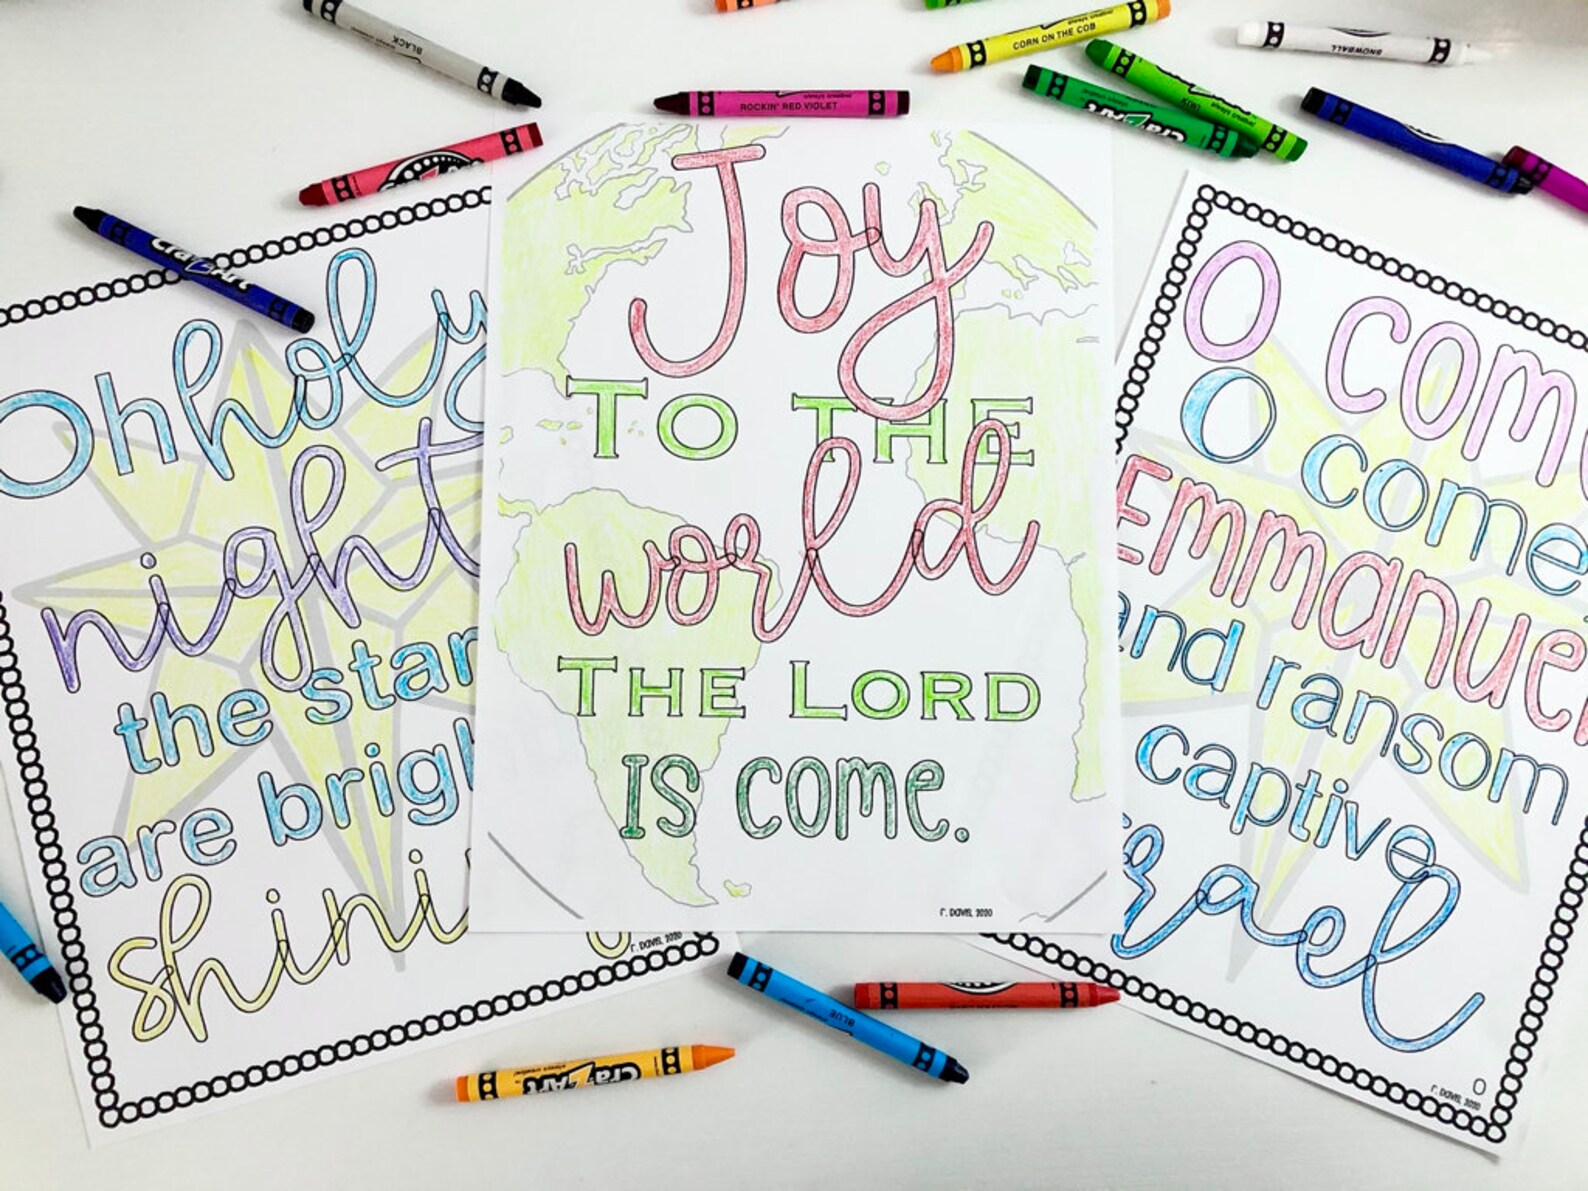 BLACK
ROCKIN' RED VIOLET
CORN ON THE COB
SNOWBALL
Cra-Z-Art
Cra-Z-Art
Oh holy
night
the star
are brigh
shini
r. Davis, 2020
Joy
TO THE
world
THE LORD
IS come.
r. Davis, 2020
O come
O come
Emmanuel
and ransom
captive
rael
r. Davis, 2020
BLUE
Cra-Z-Art